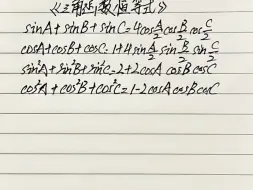 《三角函数恒等式》
sinA+sinB+sinC=4cos\frac{A}{2}cos\frac{B}{2}cos\frac{C}{2}
cosA+cosB+cosC=1+4sin\frac{A}{2}sin\frac{B}{2}sin\frac{C}{2}
sin²A+sin²B+sin²C=2+2cosA cosB cosC
cos²A+cos²B+cos²C=1-2cosA cosB cosC